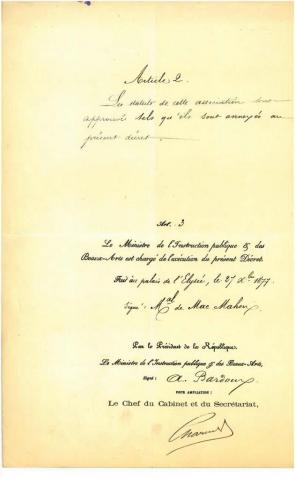 Article 2.
Les statuts de cette association sont
approuvés tels qu'ils sont annexés au
présent décret.
Art. 3
Le Ministre de l'Instruction publique & des
Beaux-Arts est chargé de l'exécution du présent Décret.
Fait au palais de l'Elysée, le 27 Xbre 1877.
Signé: Mal de Mac Mahon
Par le Président de la République.
Le Ministre de l'Instruction publique & des Beaux-Arts,
Signé: A. Bardoux
POUR AMPLIATION:
Le Chef du Cabinet et du Secrétariat,